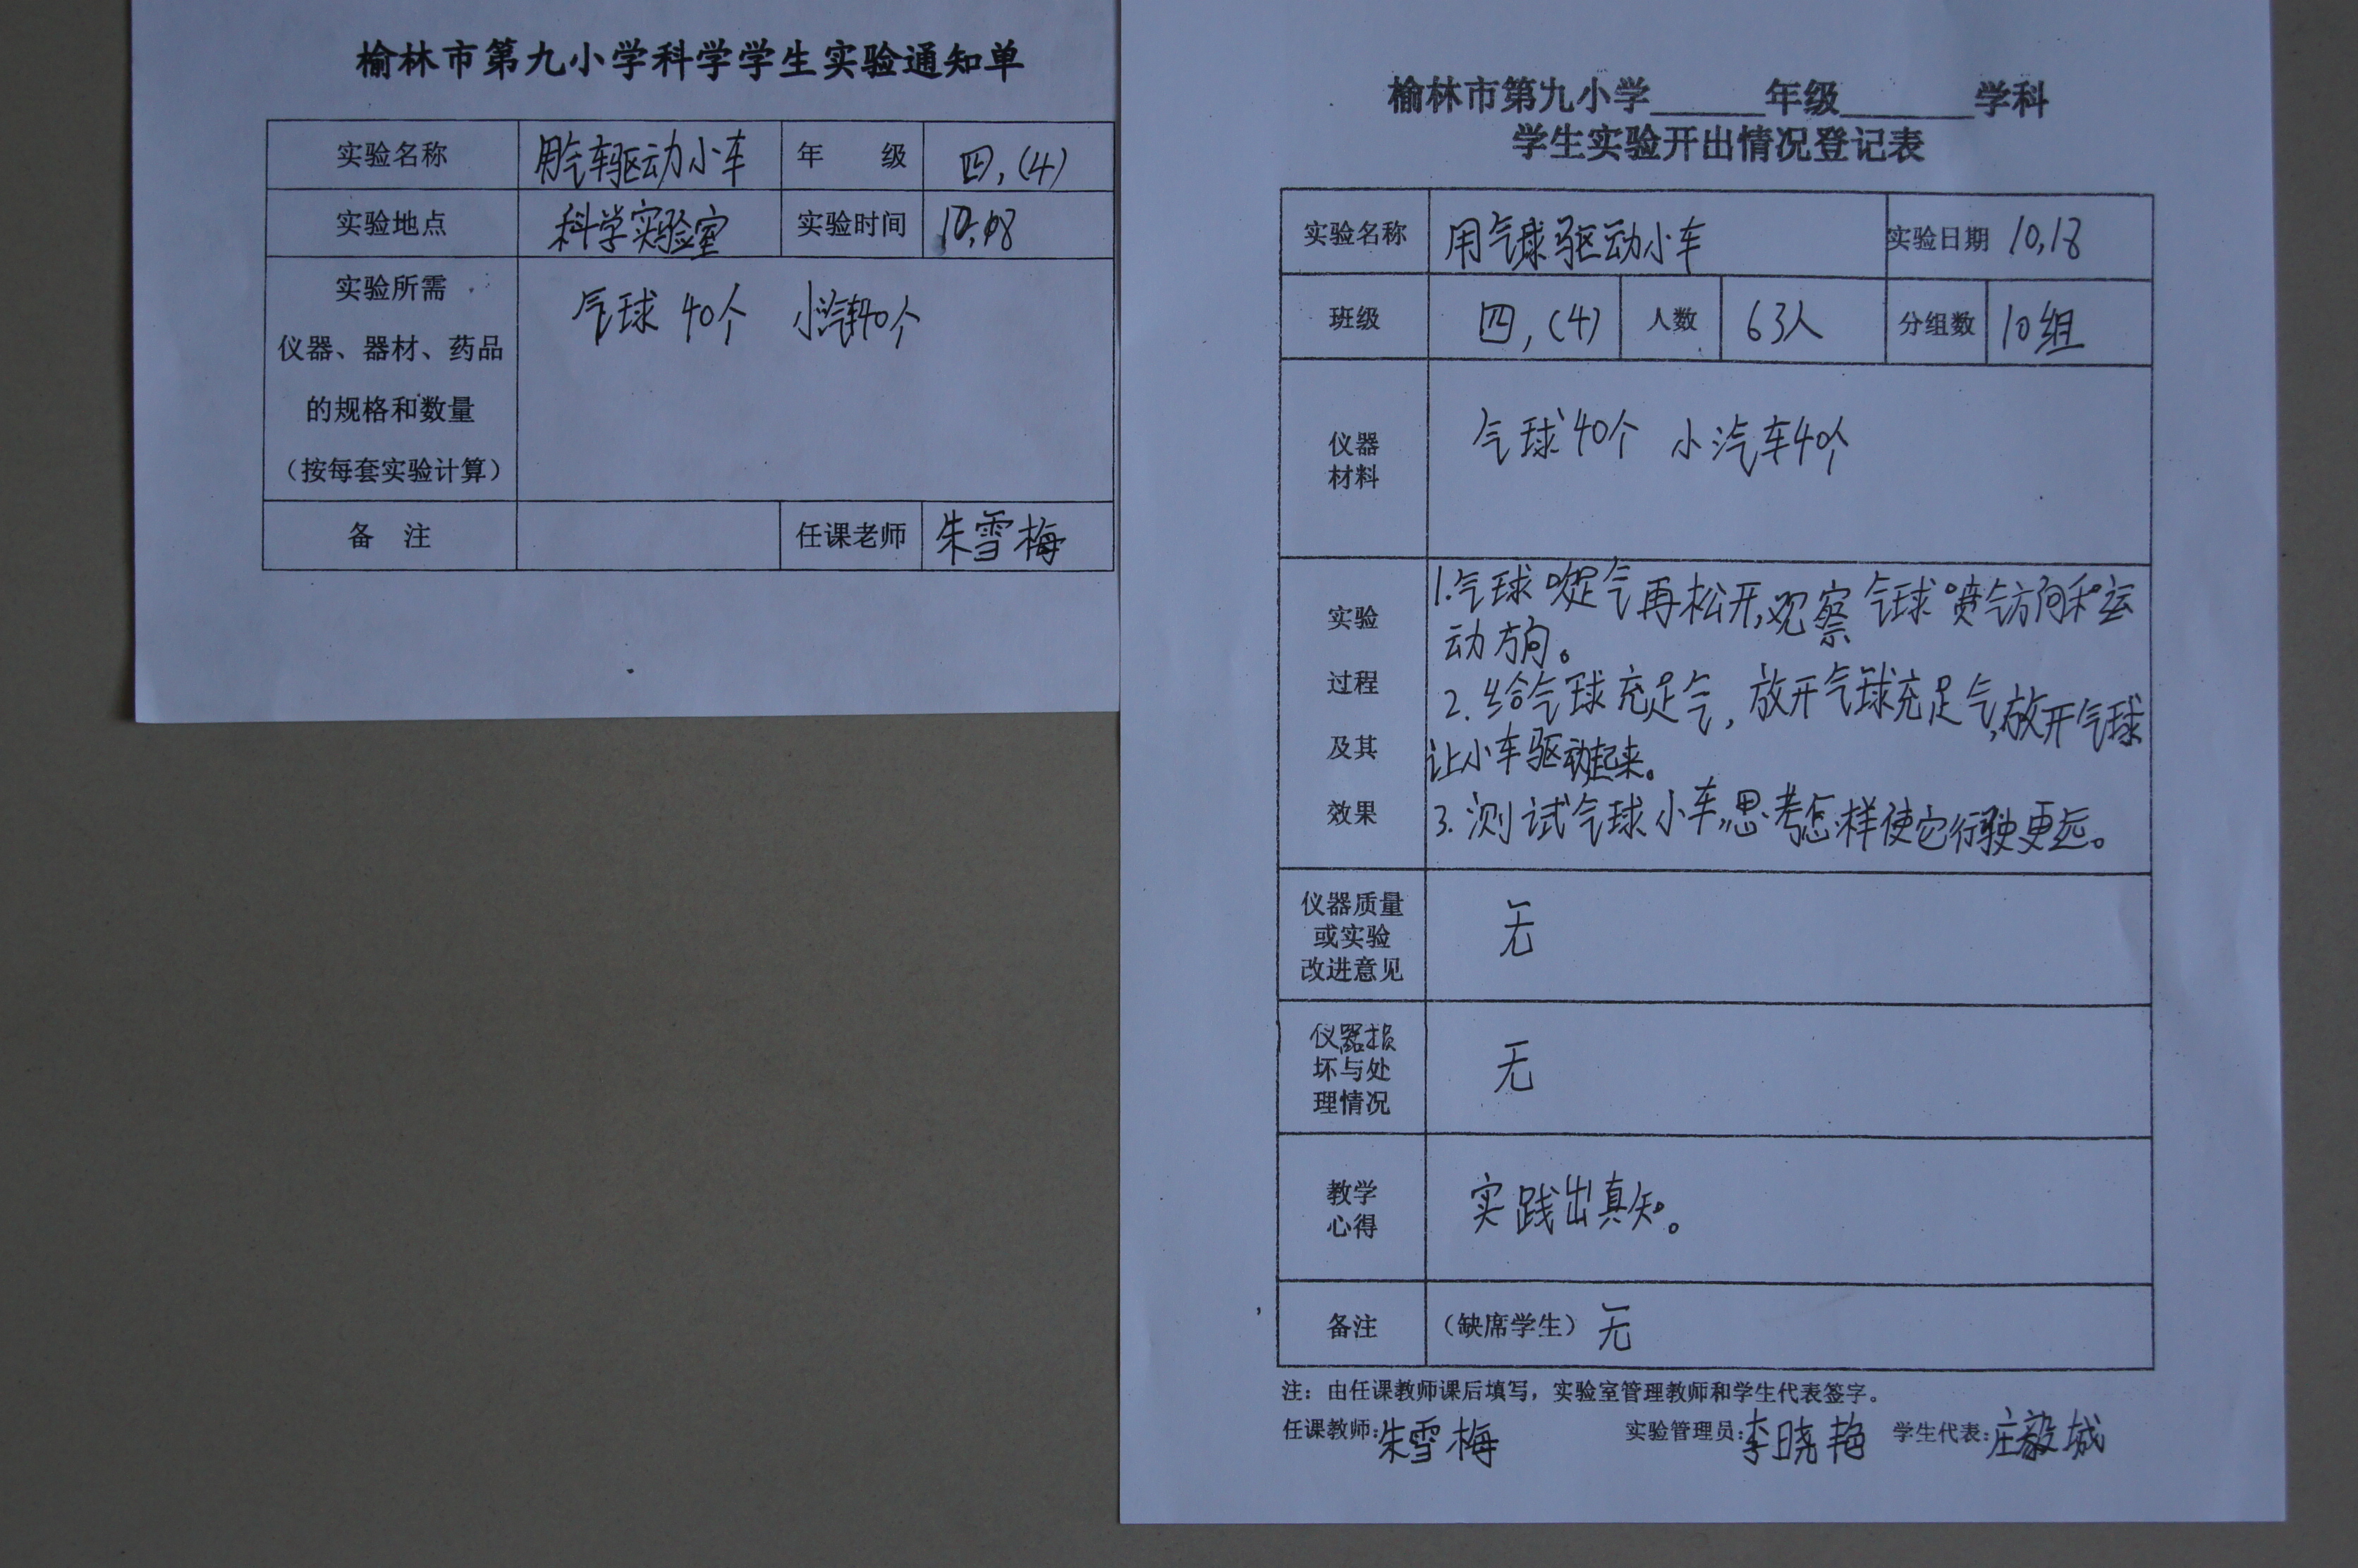 榆林市第九小学科学学生实验通知单
实验名称 用气车驱动小车 年 级 四,(4)
实验地点 科学实验室 实验时间
实验所需
仪器、器材、药品
的规格和数量
（按每套实验计算）
气球 40个 小汽车40个
备 注 任课老师 朱雪梅
榆林市第九小学______年级_______学科
学生实验开出情况登记表
实验名称 用气球驱动小车 实验日期 10,18
班级 四,(4) 人数 63人 分组数 10组
仪器
材料
气球40个 小汽车40个
实验
过程
及其
效果
1.气球 足气再松开,观察气球喷气方向和运
动方向。
2.给气球充足气,放开气球充足气,放开气球
让小车驱动起来。
3.测试气球小车,思考怎样使它行驶更远。
仪器质量
或实验
改进意见
无
仪器损
坏与处
理情况
无
教学
心得
实践出真知。
备注 （缺席学生） 无
注：由任课教师课后填写，实验室管理教师和学生代表签字。
任课教师:朱雪梅 实验管理员:李晓艳 学生代表:庄毅城